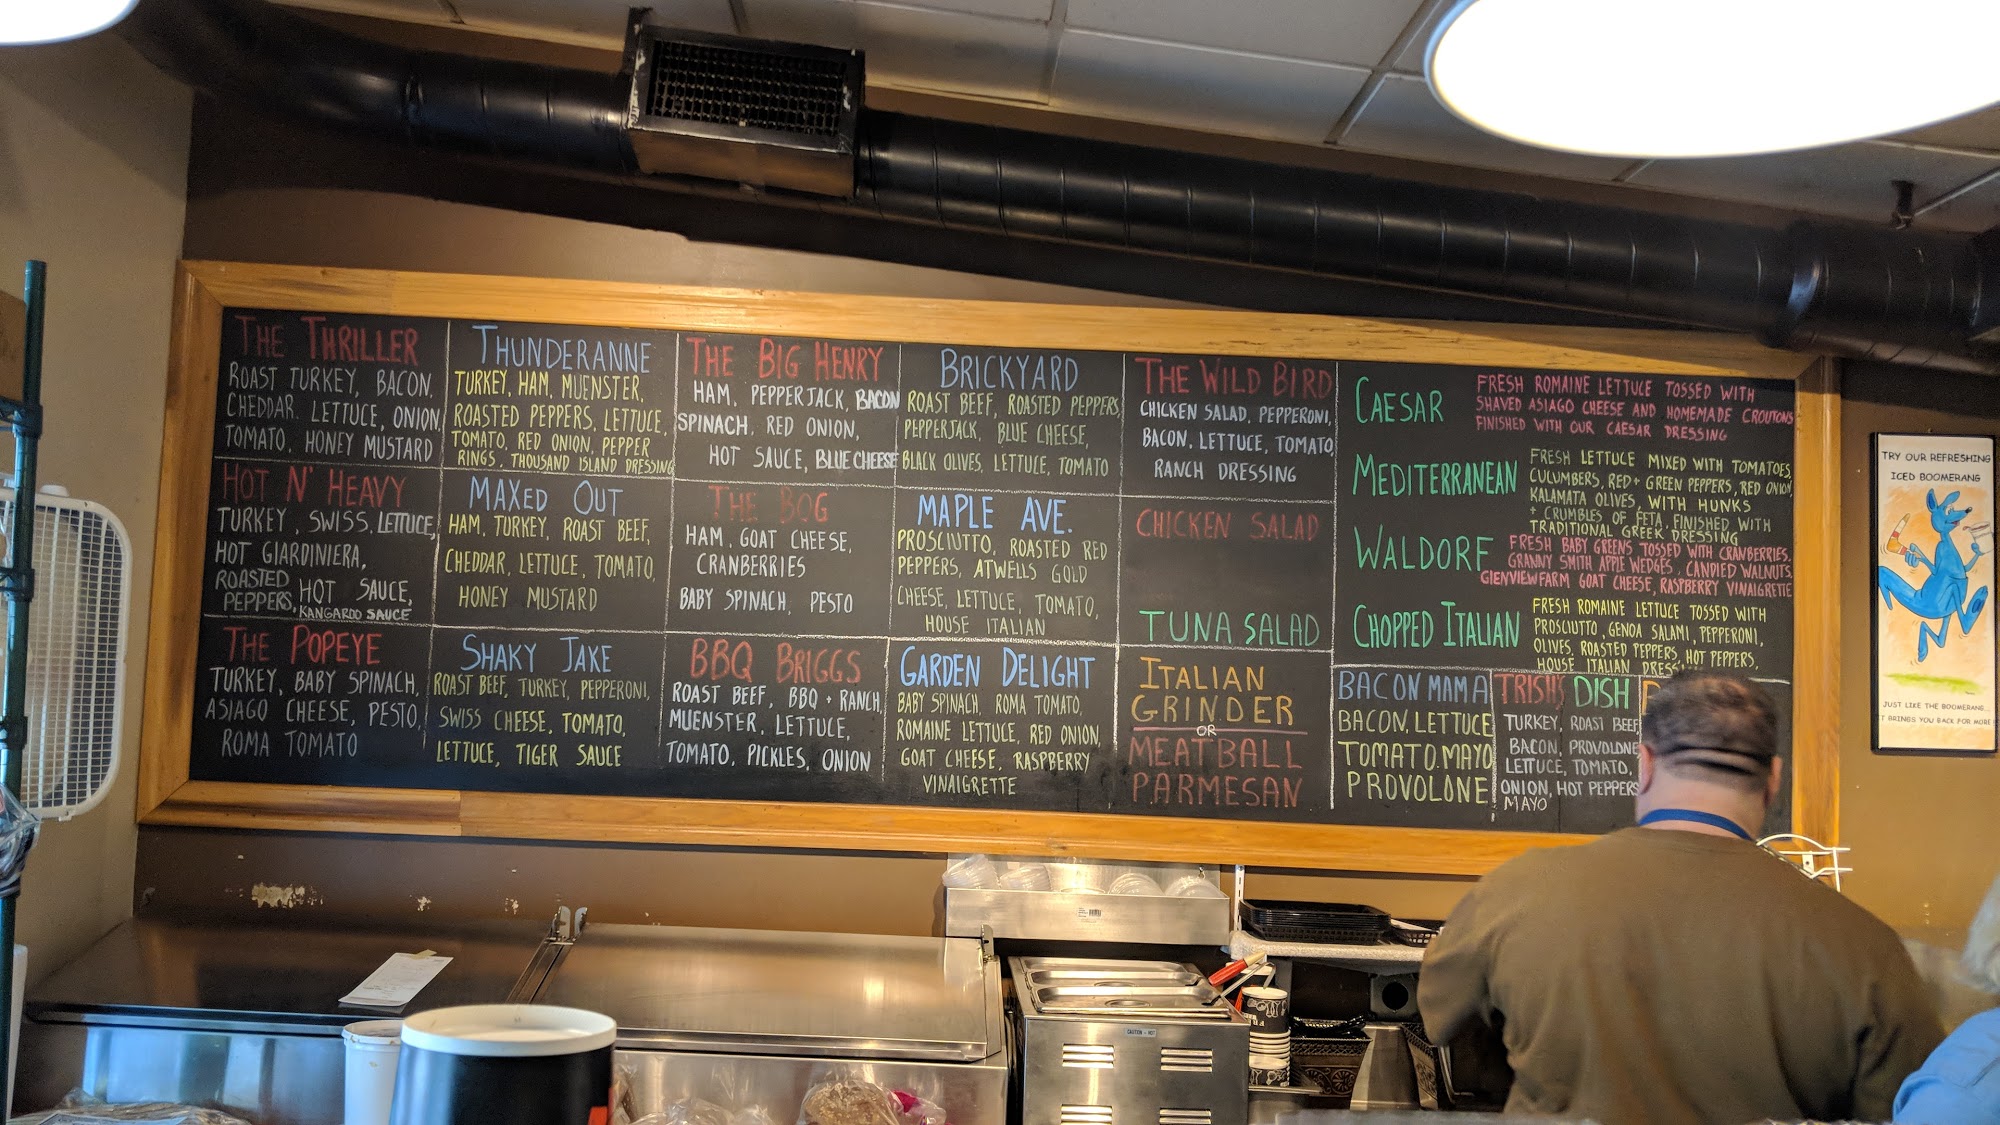 THE THRILLER
ROAST TURKEY, BACON,
CHEDDAR, LETTUCE, ONION,
TOMATO, HONEY MUSTARD
THUNDERANNE
TURKEY, HAM, MUENSTER,
ROASTED PEPPERS, LETTUCE,
TOMATO, RED ONION, PEPPER
RINGS, THOUSAND ISLAND DRESSING
THE BIG HENRY
HAM, PEPPERJACK, BACON
SPINACH, RED ONION,
HOT SAUCE, BLUE CHEESE
BRICKYARD
ROAST BEEF, ROASTED PEPPERS,
PEPPERJACK, BLUE CHEESE,
BLACK OLIVES, LETTUCE, TOMATO
THE WILD BIRD
CHICKEN SALAD, PEPPERONI,
BACON, LETTUCE, TOMATO,
RANCH DRESSING
HOT N' HEAVY
TURKEY, SWISS, LETTUCE,
HOT GIARDINIERA,
ROASTED
PEPPERS, HOT SAUCE,
KANGAROO SAUCE
MAXED OUT
HAM, TURKEY, ROAST BEEF,
CHEDDAR, LETTUCE, TOMATO,
HONEY MUSTARD
THE BOG
HAM, GOAT CHEESE,
CRANBERRIES
BABY SPINACH, PESTO
MAPLE AVE.
PROSCIUTTO, ROASTED RED
PEPPERS, ATWELLS GOLD
CHEESE, LETTUCE, TOMATO,
HOUSE ITALIAN
CHICKEN SALAD
TUNA SALAD
THE POPEYE
TURKEY, BABY SPINACH,
ASIAGO CHEESE, PESTO,
ROMA TOMATO
SHAKY JAKE
ROAST BEEF, TURKEY, PEPPERONI,
SWISS CHEESE, TOMATO,
LETTUCE, TIGER SAUCE
BBQ BRIGGS
ROAST BEEF, BBQ + RANCH,
MUENSTER, LETTUCE,
TOMATO, PICKLES, ONION
GARDEN DELIGHT
BABY SPINACH, ROMA TOMATO,
ROMAINE LETTUCE, RED ONION,
GOAT CHEESE, RASPBERRY
VINAIGRETTE
ITALIAN
GRINDER
OR
MEATBALL
PARMESAN
CAESAR
FRESH ROMAINE LETTUCE TOSSED WITH
SHAVED ASIAGO CHEESE AND HOMEMADE CROUTONS
FINISHED WITH OUR CAESAR DRESSING
MEDITERRANEAN
FRESH LETTUCE MIXED WITH TOMATOES,
CUCUMBERS, RED + GREEN PEPPERS, RED ONION,
KALAMATA OLIVES, WITH HUNKS
+ CRUMBLES OF FETA, FINISHED WITH
TRADITIONAL GREEK DRESSING
WALDORF
FRESH BABY GREENS TOSSED WITH CRANBERRIES,
GRANNY SMITH APPLE WEDGES, CANDIED WALNUTS,
GLENVIEW FARM GOAT CHEESE, RASPBERRY VINAIGRETTE
CHOPPED ITALIAN
FRESH ROMAINE LETTUCE TOSSED WITH
PROSCIUTTO, GENOA SALAMI, PEPPERONI,
OLIVES, ROASTED PEPPERS, HOT PEPPERS,
HOUSE ITALIAN DRESS
BACON MAMA
BACON, LETTUCE
TOMATO, MAYO
PROVOLONE
TRISH'S DISH
TURKEY, ROAST BEEF
BACON, PROVOLONE
LETTUCE, TOMATO,
ONION, HOT PEPPERS
MAYO
TRY OUR REFRESHING
ICED BOOMERANG
JUST LIKE THE BOOMERANG...
IT BRINGS YOU BACK FOR MORE!
CAUTION - HOT